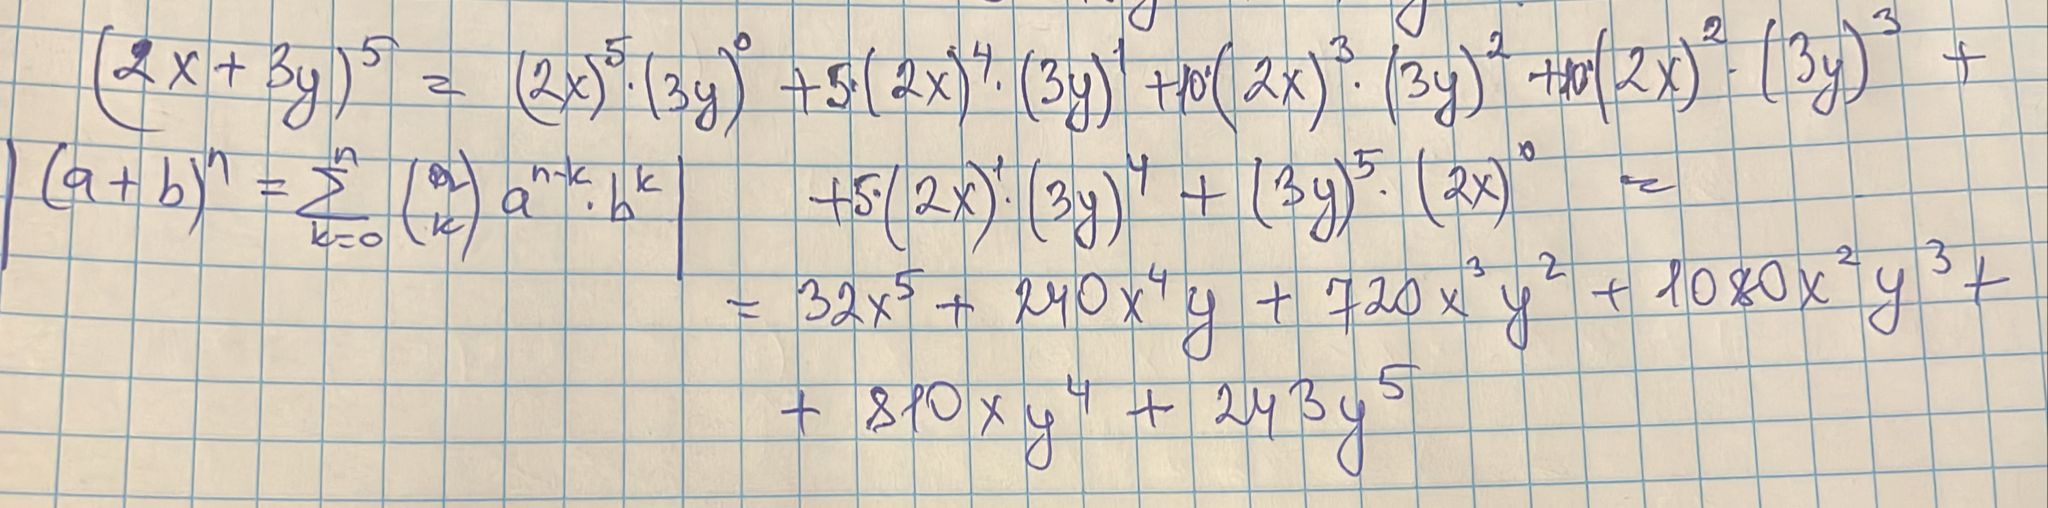 (2x+3y)⁵ = (2x)⁵·(3y)⁰ +5·(2x)⁴·(3y)¹ +10·(2x)³·(3y)² +10·(2x)²·(3y)³ +
|(a+b)ⁿ = ∑ₖ₌₀ⁿ (n k) aⁿ⁻ᵏ·bᵏ| +5·(2x)¹·(3y)⁴ + (3y)⁵·(2x)⁰ =
= 32x⁵ + 240x⁴y + 720x³y² + 1080x²y³ +
+ 810xy⁴ + 243y⁵